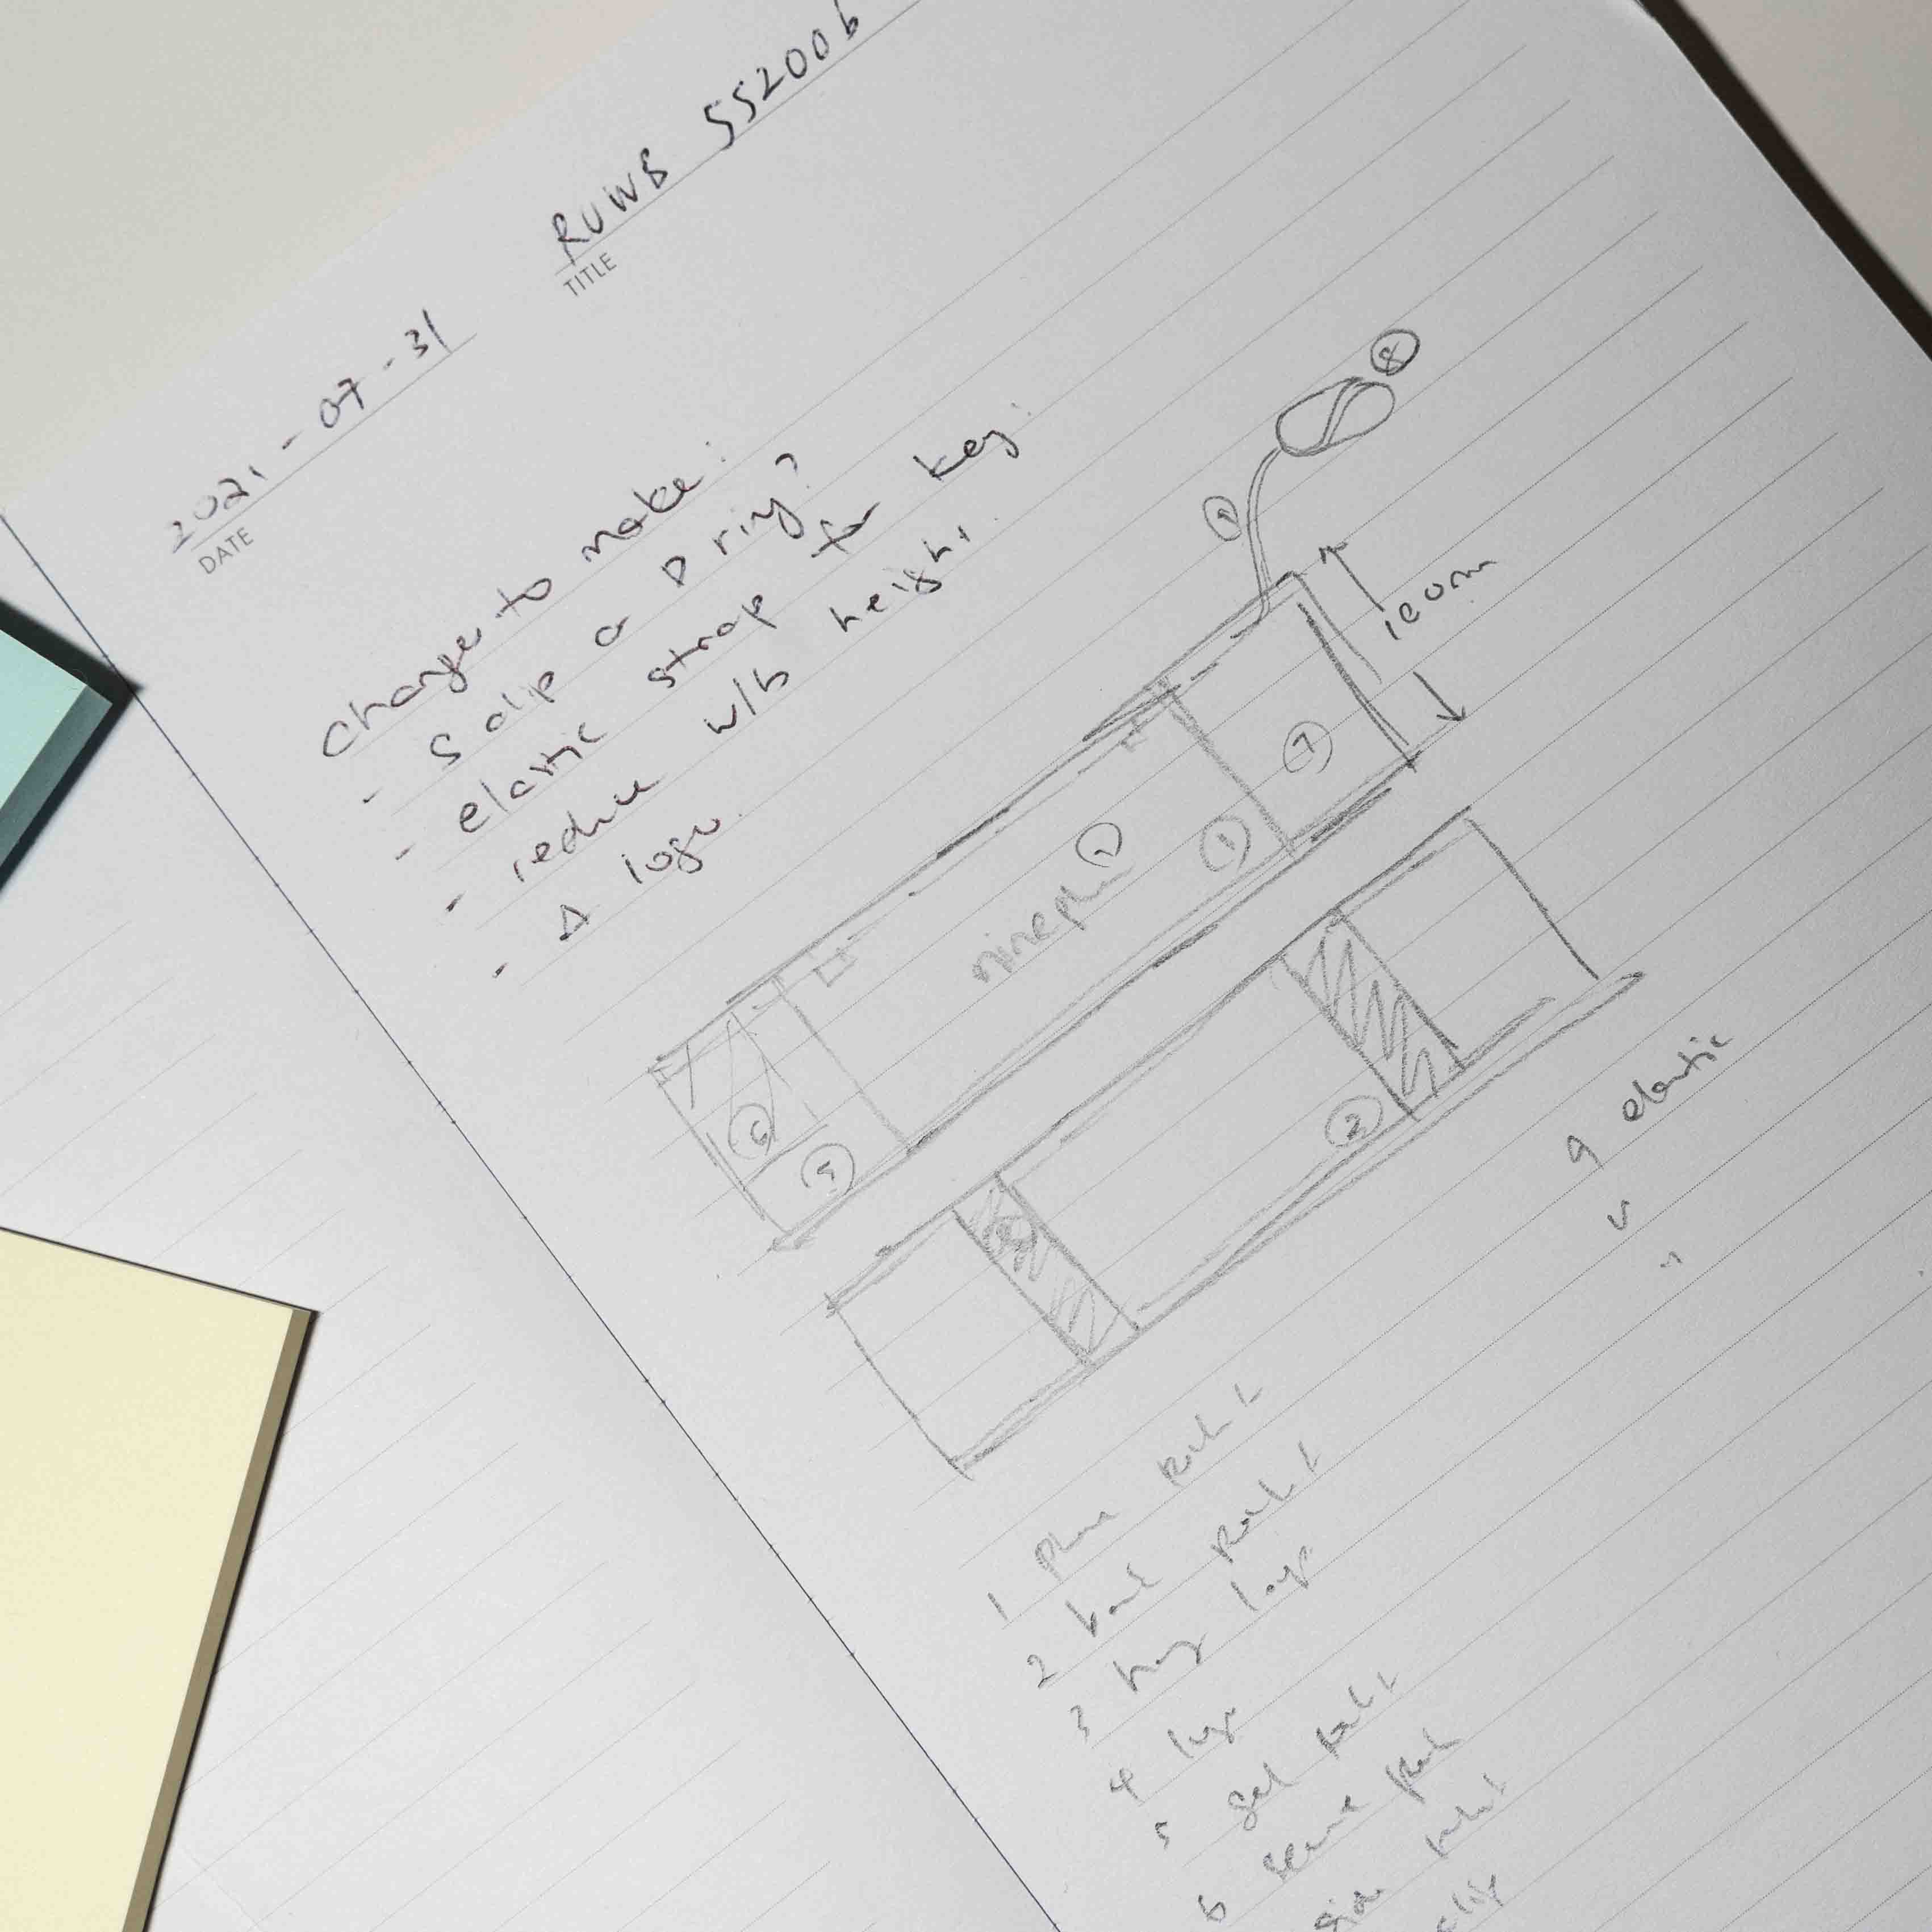 2021-07-31
DATE
RUWB SS2006
TITLE
Change to make:
- S clip or D ring?
- elastic strap for key.
- reduce w/b height.
- Δ logo.
8
9
10cm
7
1
nineplus
6
5
2
9 elastic
1 phone pocket
2 back pocket
3 key loop
4 logo
5 gel pocket
6 secure pock
pocket
clip